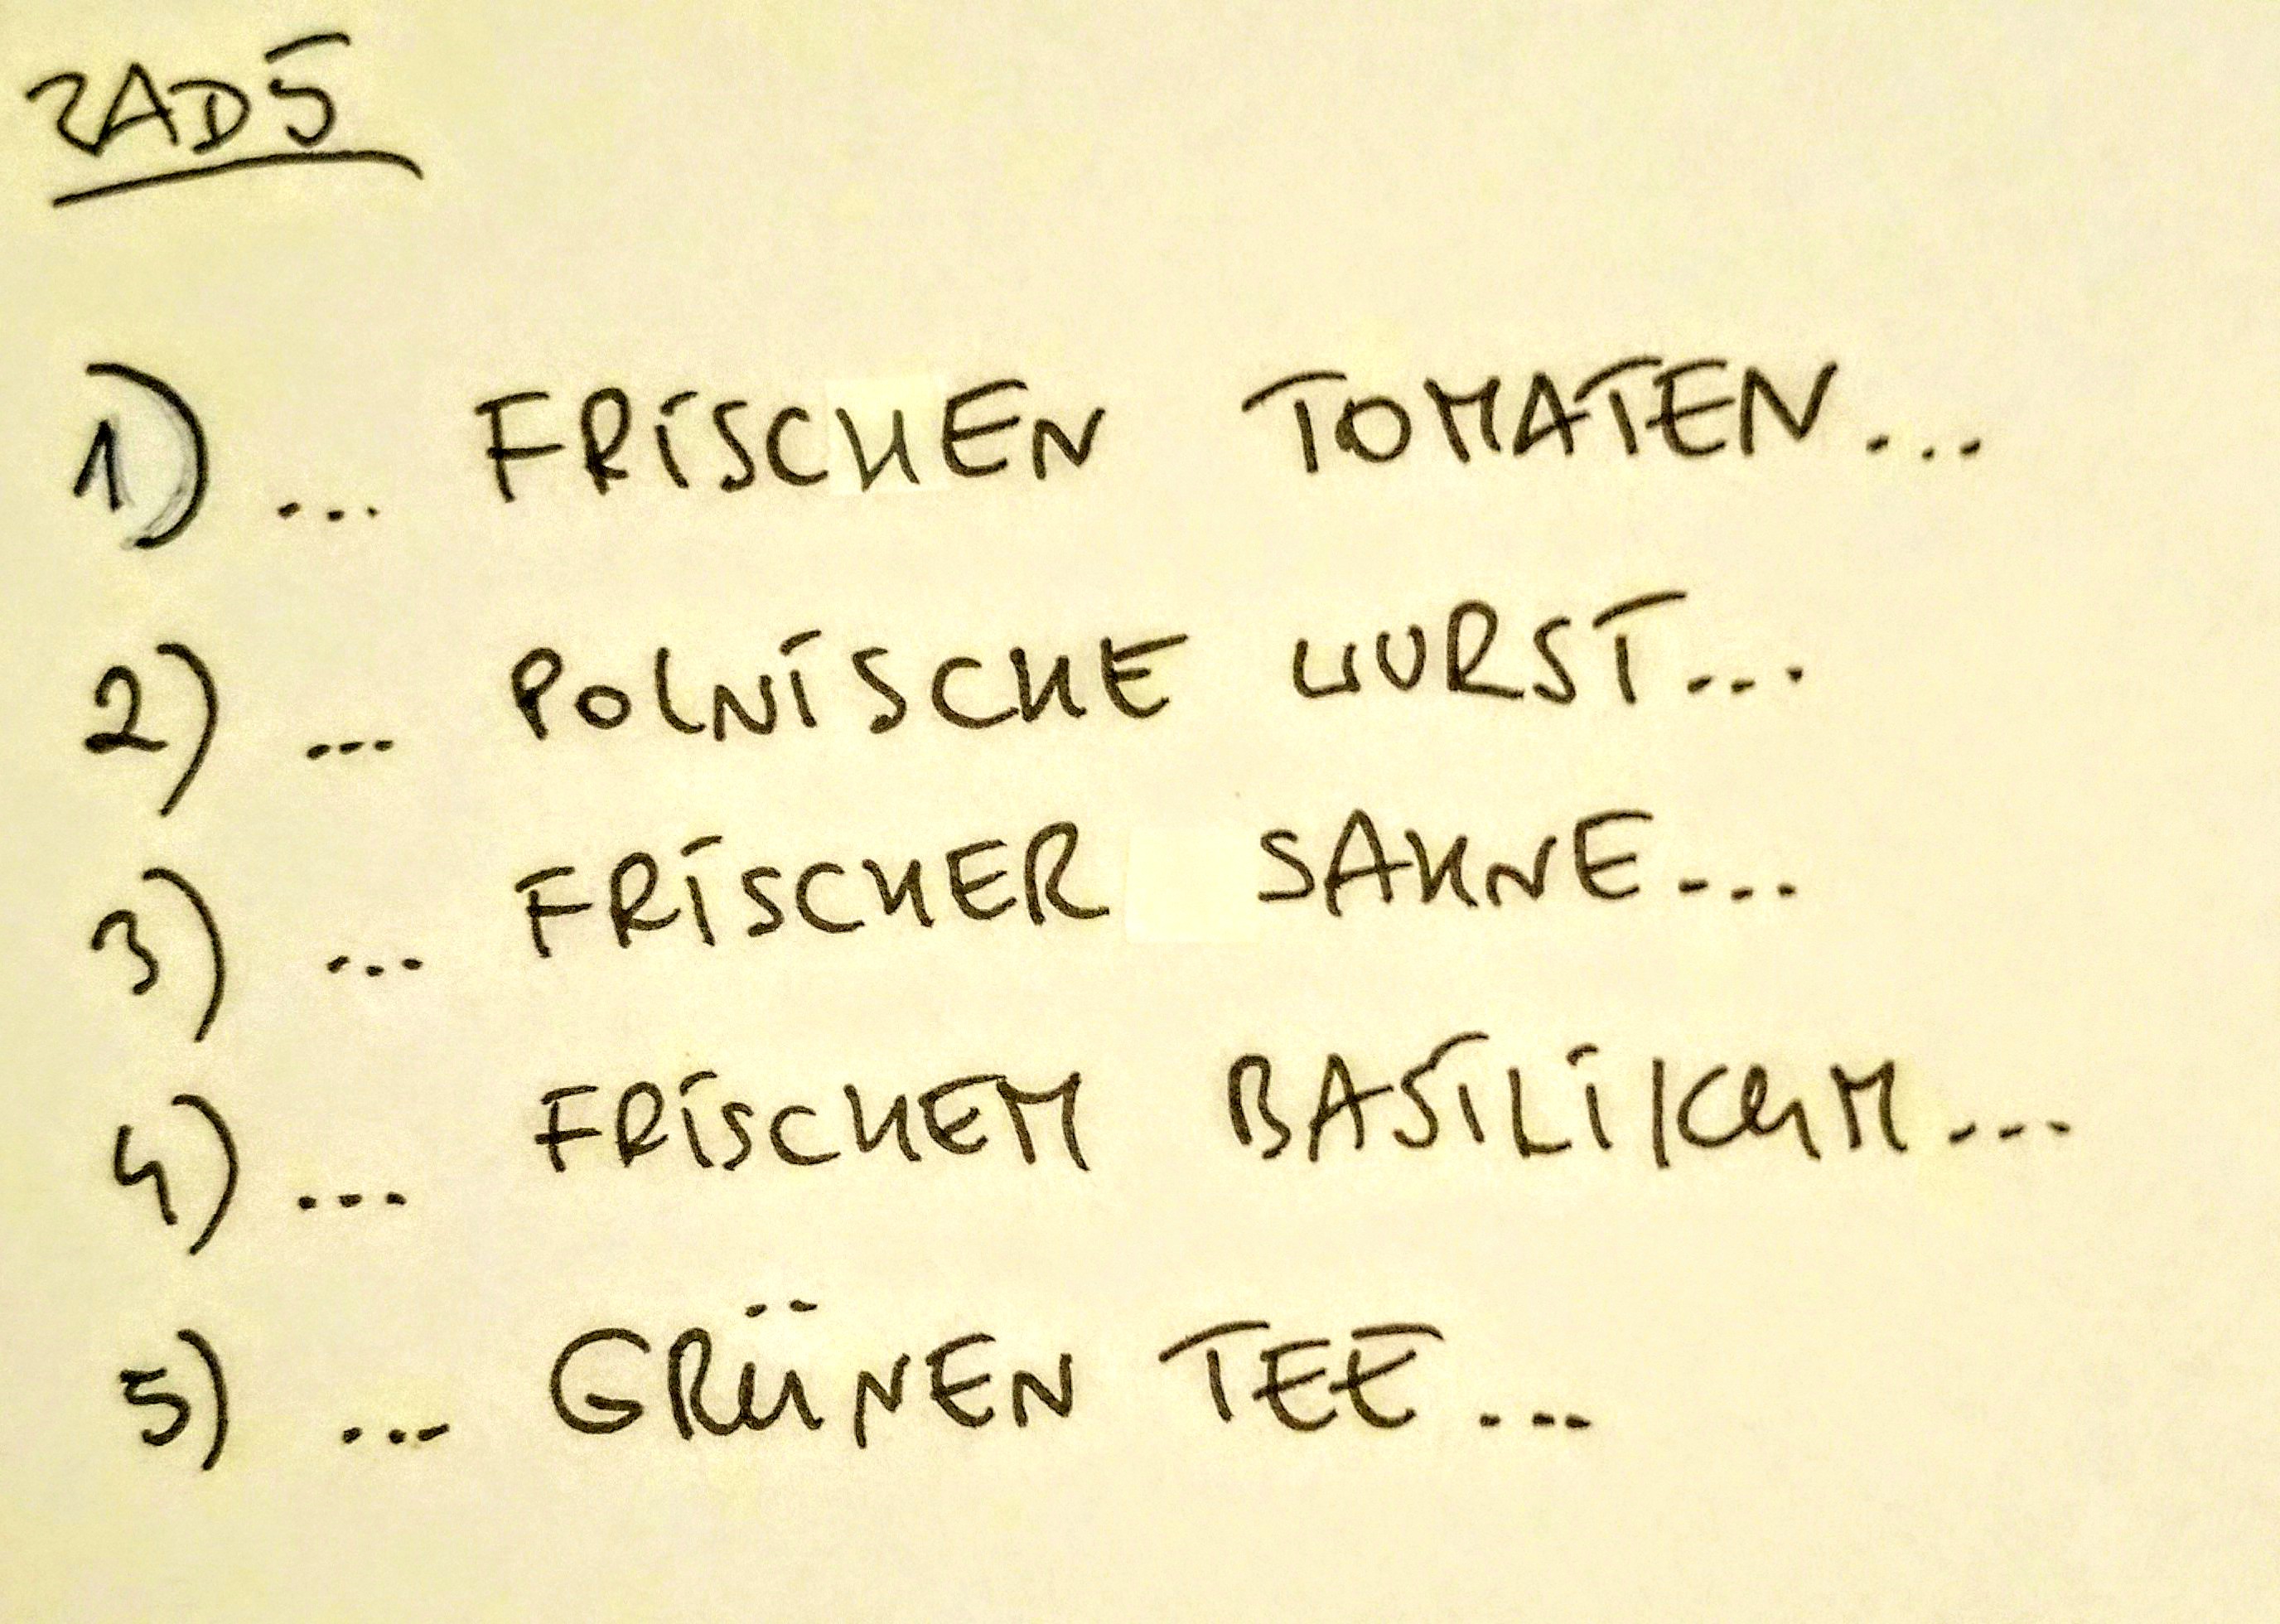 ZAD 5
1) ... FRISCHEN TOMATEN...
2) ... POLNISCHE WURST...
3) ... FRISCHER SAHNE...
4) ... FRISCHEM BASILIKUM...
5) ... GRÜNEN TEE...